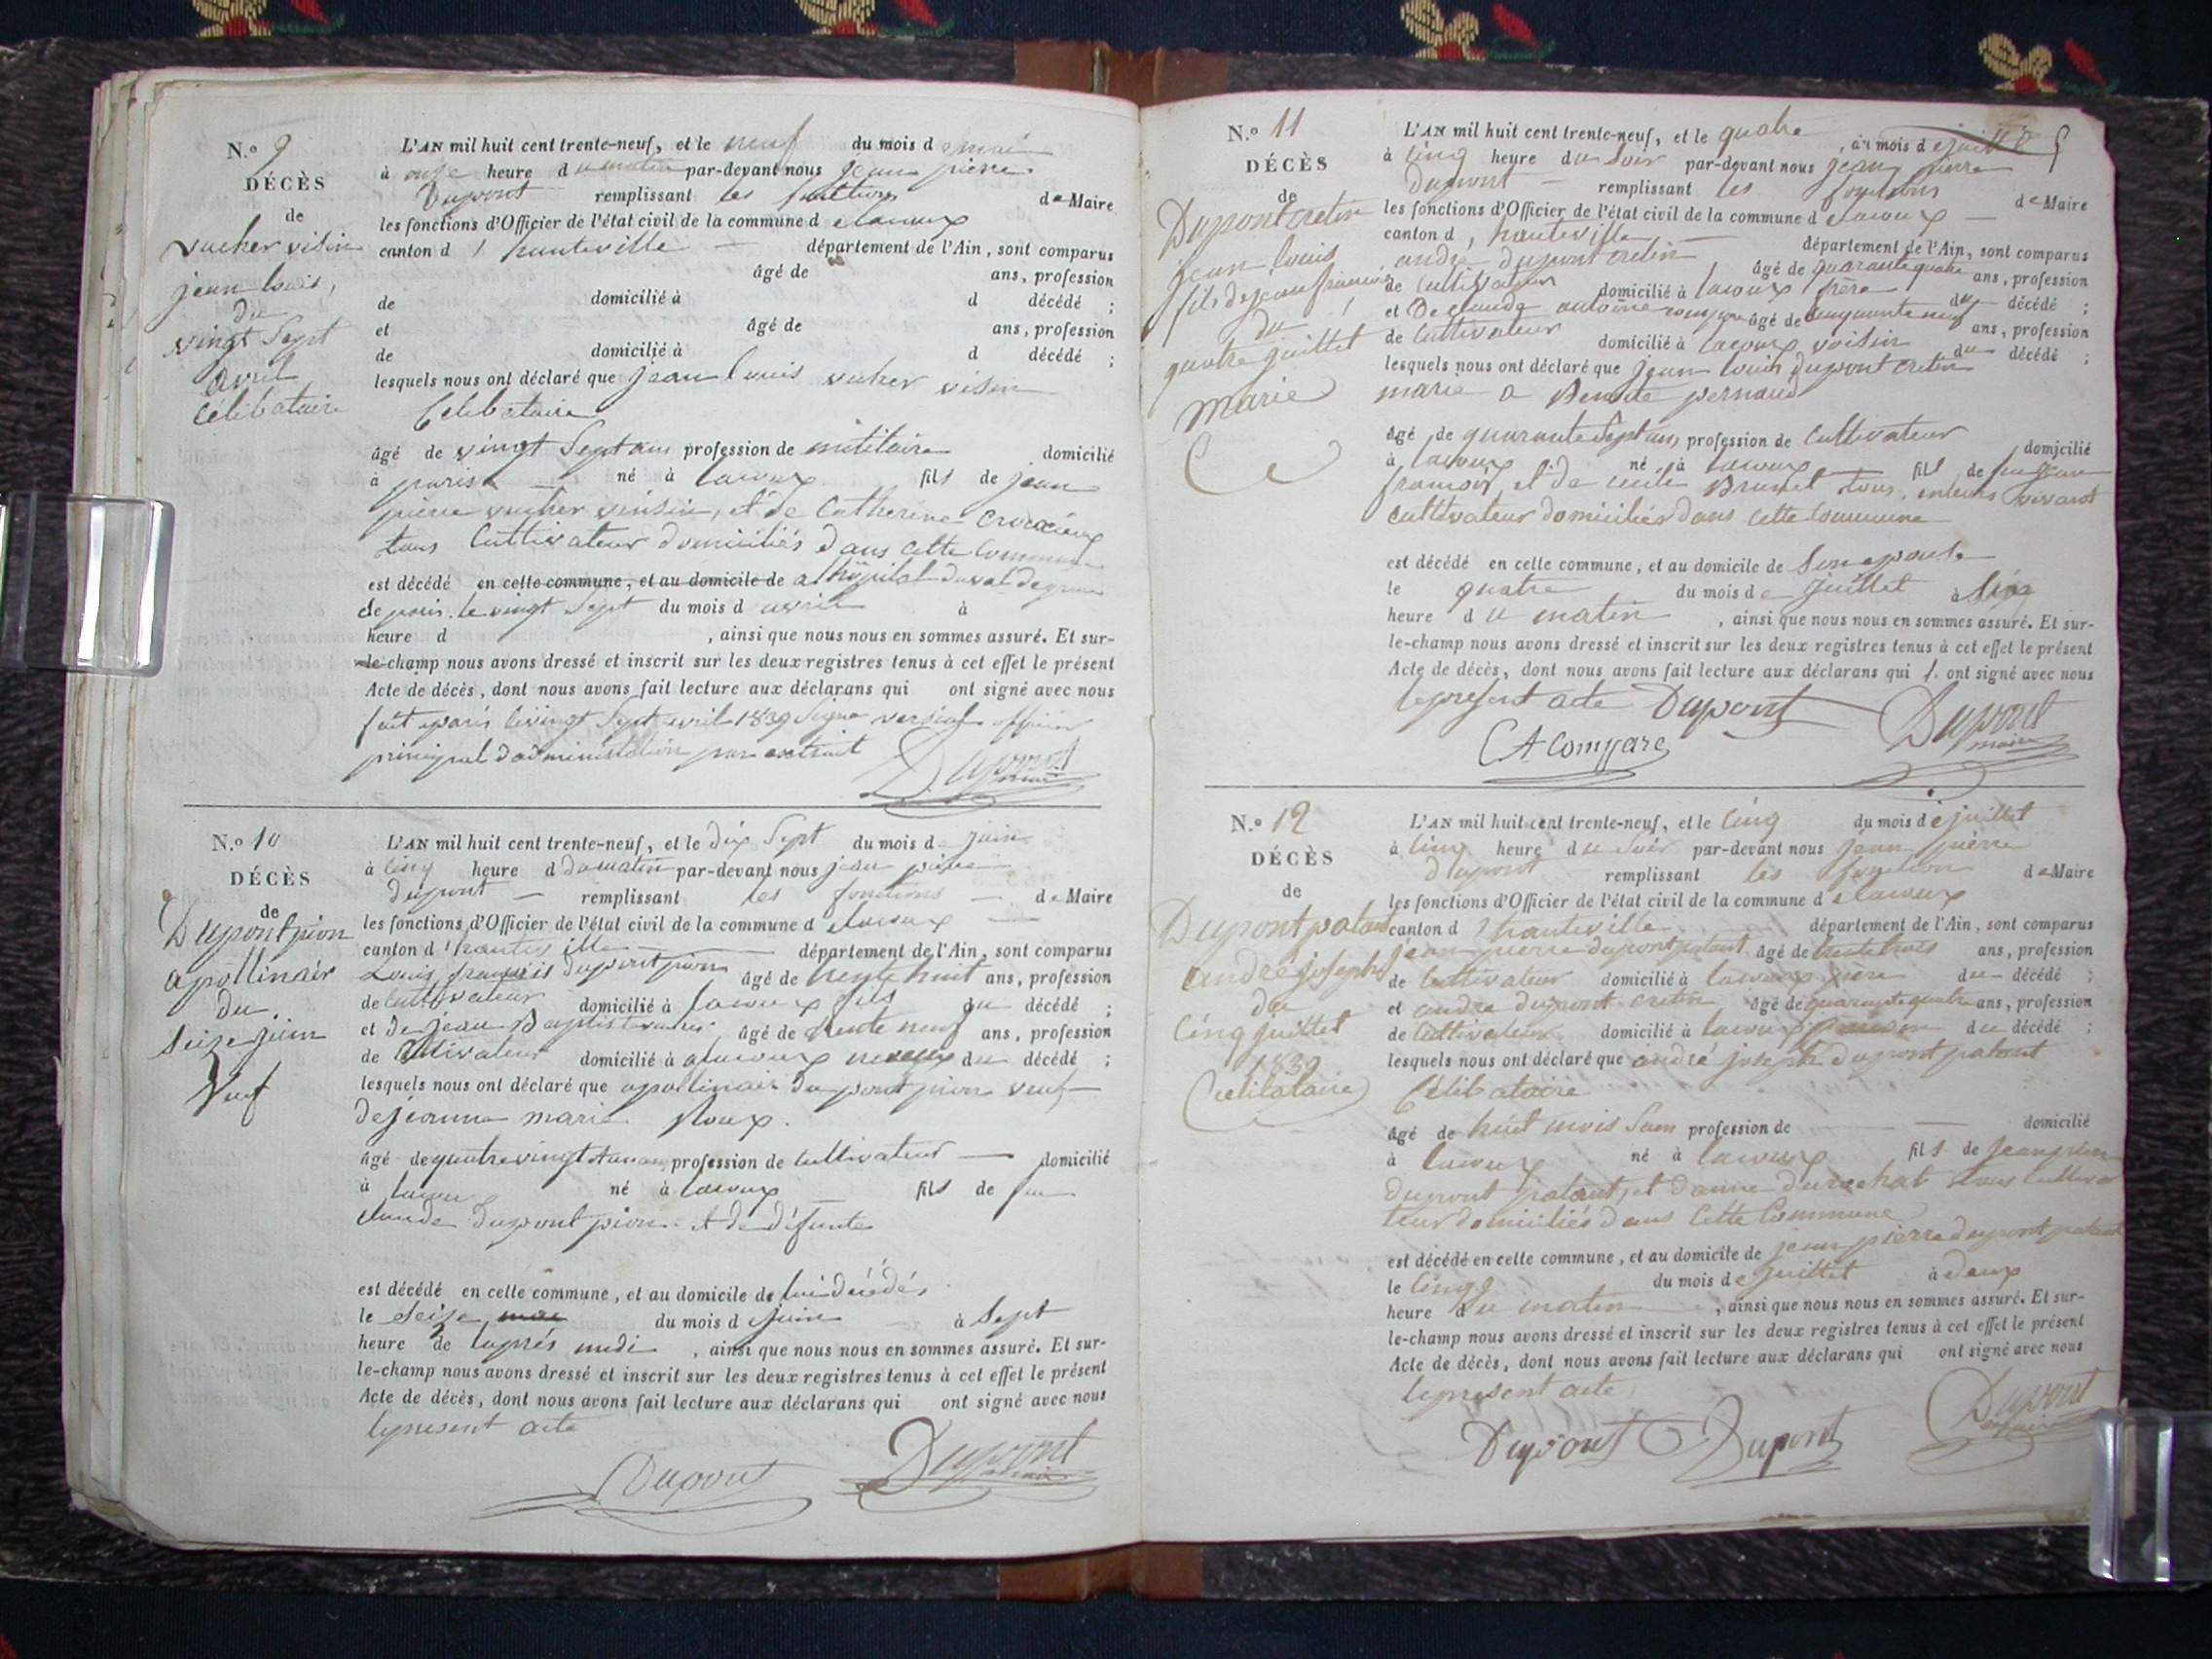 N.º 9
DÉCÈS
de
vucher visin
jean louis,
du
vingt Sept
avril
célibataire
L'AN mil huit cent trente-neuf, et le neuf du mois de mai
à onze heure du matin par-devant nous jean pierre
Dupont remplissant les fonctions de Maire
les fonctions d'Officier de l'état civil de la commune de lacoux
canton d'hauteville — département de l'Ain, sont comparus
âgé de ans, profession
de domicilié à d décédé ;
et âgé de ans, profession
de domicilié à d décédé ;
lesquels nous ont déclaré que jean louis vucher visin
Célibataire
âgé de vingt Sept ans profession de militaire domicilié
à paris né à lacoux fils de jean
pierre vucher vinsin, et de Catherine
tous Cultivateur domiciliés dans cette Commune
est décédé en cette commune, et au domicile de a l'hôpital du val de grace
de paris. le vingt Sept du mois d avril à
heure d , ainsi que nous nous en sommes assuré. Et sur-
le-champ nous avons dressé et inscrit sur les deux registres tenus à cet effet le présent
Acte de décès, dont nous avons fait lecture aux déclarans qui ont signé avec nous
fait a paris le vingt Sept avril 1839 Signe officier
principal d'administration par extrait
Dupont
maire
N.º 10
DÉCÈS
de
Dupont pion
apollinair
du
Seize juin
Veuf
L'AN mil huit cent trente-neuf, et le dix Sept du mois de juin
à Cinq heure d du matin par-devant nous jean pierre
Dupont — remplissant les fonctions — de Maire
les fonctions d'Officier de l'état civil de la commune de lacoux
canton d'hauteville — département de l'Ain, sont comparus
Louis françois Dupont pion âgé de trente huit ans, profession
de Cultivateur domicilié à lacoux fils du décédé ;
et De jean Baptiste âgé de trente neuf ans, profession
de Cultivateur domicilié à alacoux neveux du décédé ;
lesquels nous ont déclaré que apollinair Dupont pion veuf
de jeanne marie Roux.
âgé de quatre vingt ans profession de Cultivateur — domicilié
à lacoux né à lacoux — fils de feu
claude Dupont pion et de défunte
est décédé en cette commune, et au domicile de lui décédés
le Seize mai du mois de juin à Sept
heure de laprés midi , ainsi que nous nous en sommes assuré. Et sur-
le-champ nous avons dressé et inscrit sur les deux registres tenus à cet effet le présent
Acte de décès, dont nous avons fait lecture aux déclarans qui ont signé avec nous
le present acte
Dupont Dupont
maire
N.º 11
DÉCÈS
de
Dupont cretin
jean louis
fils de jean françois
du
quatre juillet
marie
L'AN mil huit cent trente-neuf, et le quatre , du mois de juillet
à Cinq heure du Soir par-devant nous jean pierre
dupont — remplissant les fonctions de Maire
les fonctions d'Officier de l'état civil de la commune de lacoux —
canton d, hauteville — département de l'Ain, sont comparus
andré dupont cretin âgé de quarante quatre ans, profession
de Cultivateur domicilié à lacoux frère du décédé ;
et De claude antoine âgé de cinquante neuf ans, profession
de Cultivateur domicilié à lacoux voisin du décédé ;
lesquels nous ont déclaré que jean louis dupont cretin
marie a Benoite pernaud
âgé de quarante Sept ans, profession de Cultivateur domicilié
à lacoux né à lacoux fils de feu jean
françois et de Brunet tous vivant
cultivateur domiciliés dans cette Commune
est décédé en cette commune, et au domicile de Son epouse
le quatre du mois de juillet à Cinq
heure d u matin , ainsi que nous nous en sommes assuré. Et sur-
le-champ nous avons dressé et inscrit sur les deux registres tenus à cet effet le présent
Acte de décès, dont nous avons fait lecture aux déclarans qui ont signé avec nous
le present acte Dupont Dupont
maire
N.º 12
DÉCÈS
de
Dupont palant
andré joseph
du
Cinq juillet
1839
Celibataire
L'AN mil huit cent trente-neuf, et le Cinq du mois de juillet
à Cinq heure du Soir par-devant nous jean pierre
dupont remplissant les fonction de Maire
les fonctions d'Officier de l'état civil de la commune de lacoux
canton d'hauteville département de l'Ain, sont comparus
jean pierre dupont palant âgé de trente trois ans, profession
de Cultivateur domicilié à lacoux père du décédé ;
et andre dupont cretin âgé de quarante quatre ans, profession
de Cultivateur domicilié à lacoux du décédé ;
lesquels nous ont déclaré que andré joseph dupont palant
Célibataire
âgé de huit mois profession de — domicilié
à lacoux né à lacoux fils de jean pierre
dupont palant, et d'anne tous Cultiva
teur domiciliés dans Cette Commune
est décédé en cette commune, et au domicile de jean pierre dupont palant
le Cinq du mois de juillet à deux
heure du matin , ainsi que nous nous en sommes assuré. Et sur-
le-champ nous avons dressé et inscrit sur les deux registres tenus à cet effet le présent
Acte de décès, dont nous avons fait lecture aux déclarans qui ont signé avec nous
le present acte
Dupont Dupont Dupont
maire